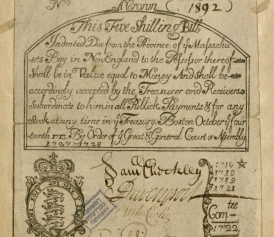 No
(1892)
This Five Shilling Bill
Indented Due from the Province of ye Massachu
setts Bay in New England to the Possessor thereof
Shall be in Value equal to Money And Shall be
accordingly accepted by the Treasurer and Receivers
Subordinate to him in all Publick Payments & for any
Stock at any time in ye Treasury Boston October ye four
teenth 1713 By Order of ye Great & General Court or Assembly
1727 1728
Sam Checkley
Davenport
1716
1718
1719
1721
tee
Com
1722